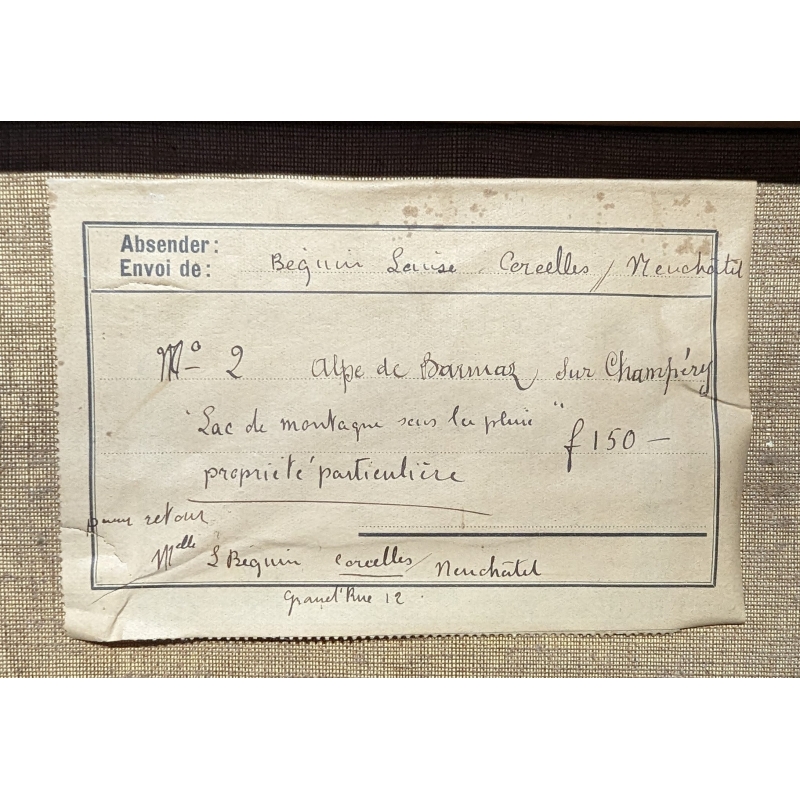 Absender:
Envoi de: Béguin Louise - Corcelles / Neuchâtel
No 2 Alpe de Barmaz, sur Champéry
"Lac de montagne sous la pluie" f 150 —
propriété particulière
pour retour
Melle L Beguin Corcelles / Neuchâtel
Grand'Rue 12.